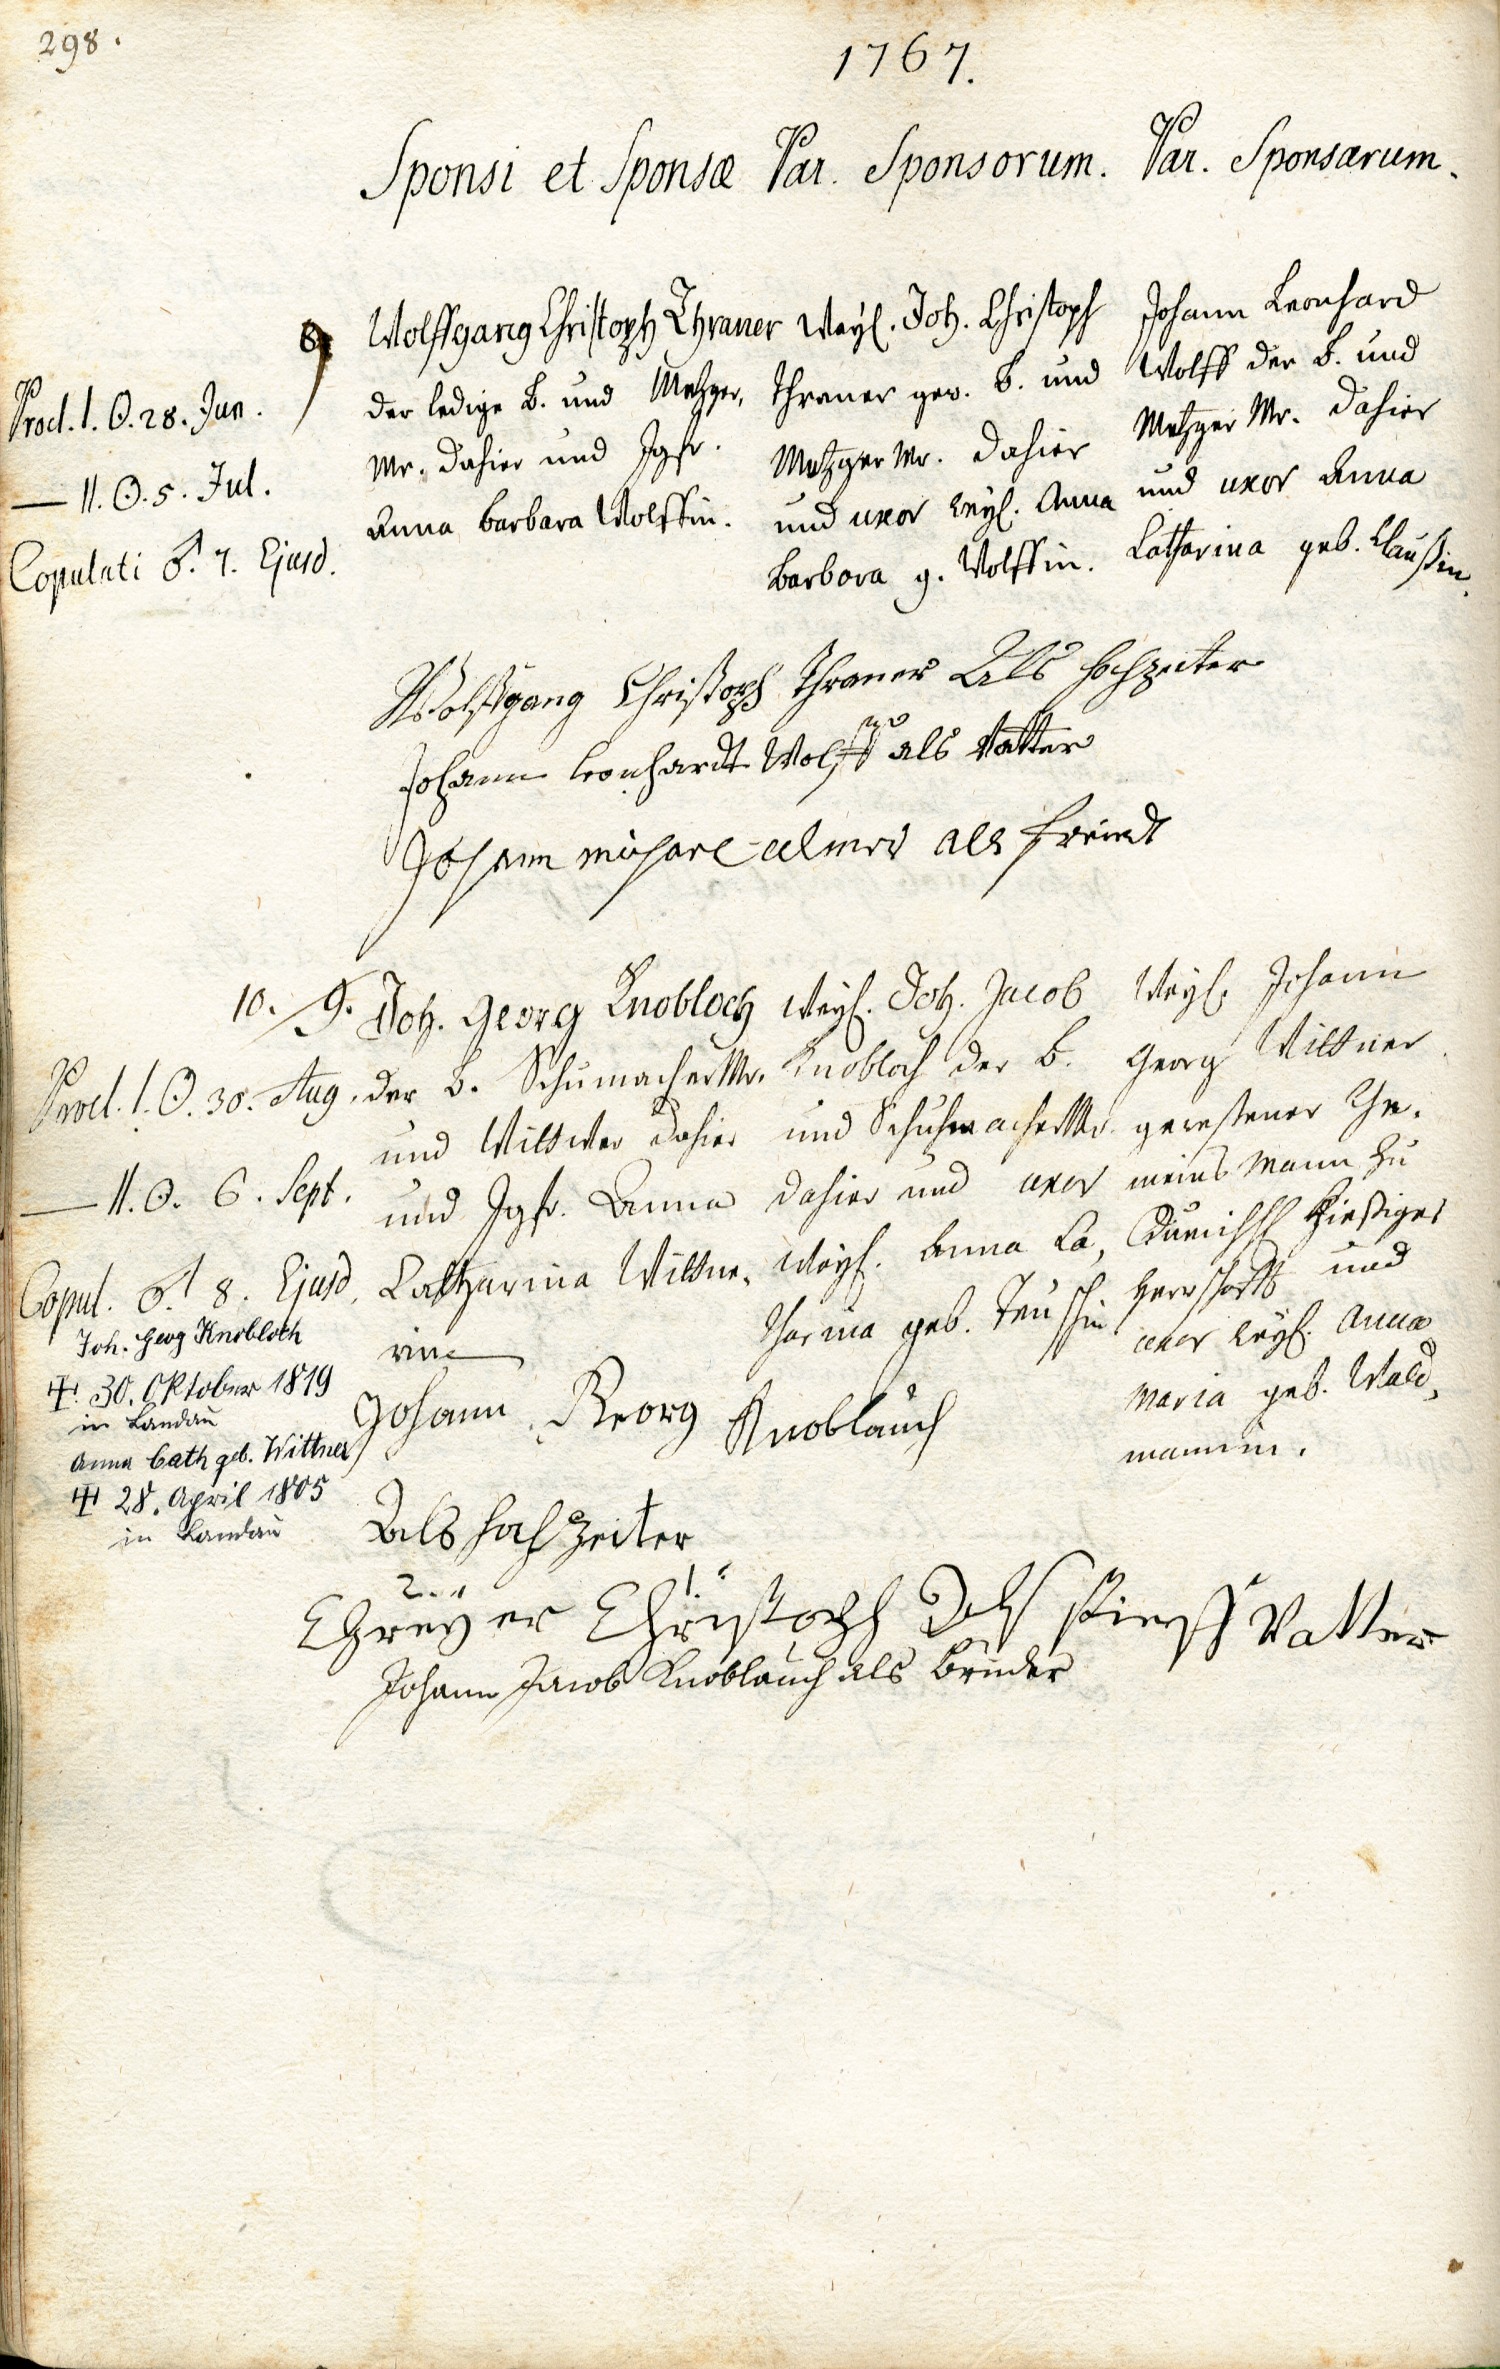 298.
1767.
Sponsi et Sponsæ Par. Sponsorum. Par. Sponsarum.
9
Procl. I. ☉. 28. Jun.
— II. ☉. 5. Jul.
Copulati ♂. 7. Ejusd.
Wolffgang Christoph Thraner
der ledige B. und Metzger,
Mr. dahier und Jgfr.
Anna Barbara Wolffin.
Weyl. Joh. Christoph
Thraner gew. B. und
Metzger Mr. dahier
und uxor weyl. Anna
Barbara g. Wolffin.
Johann Leonhard
Wolff der B. und
Metzger Mr. dahier
und uxor Anna
Catharina geb. Claußin.
Wolffgang Christoph Thraner Als Hochzeiter
Johann Leonhardt Wolff als Vatter
Johann Michael als Freindt
10. 9.
Procl. I. ☉. 30. Aug.
— II. ☉. 6. Sept.
Copul. ♂. 8. Ejusd.
Joh. Georg Knobloch
der B. Schumacher Mr.
und Wittwer dahier
und Jgfr. Anna
Catharina Wittne,
rin
Weyl. Joh. Jacob
Knobloch der B.
und Schuhmacher Mr.
dahier und uxor
weyl. Anna Ca,
tharina geb. Teuschin
Weyl. Johann
Georg Wittner
gewesener Ge,
meins Mann zu
hießiger
Herrschafft und
uxor weyl. Anna
Maria geb. Wald,
mannin.
Joh. Georg Knobloch
30. Oktober 1819
in Landau
Anna Cath geb. Wittner
28. April 1805
in Landau
Johann Georg Knoblauch
Als hochzeiter
2. 1.
Christoph Als Vatter
Johann Jacob Knoblauch als Bruder